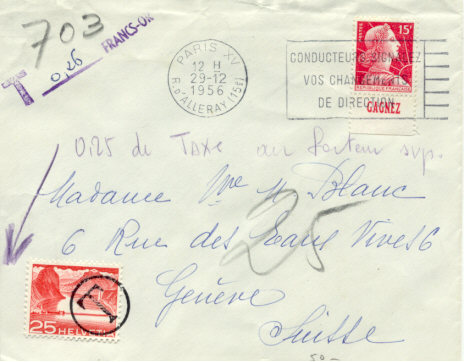 703
T 0,26 FRANCS-OR
PARIS XV
12 H
29-12
1956
R. D'ALLERAY (15e)
CONDUCTEURS SIGNALEZ
VOS CHANGEMENTS
DE DIRECTION
15F
POSTES
REPUBLIQUE FRANÇAISE
GAGNEZ
0.25 de Taxe au facteur svp.
Madame Vve M Blanc
25
6 Rue des Eaux Vives 6
Genève
Suisse
T
25 HELVETIA
50-